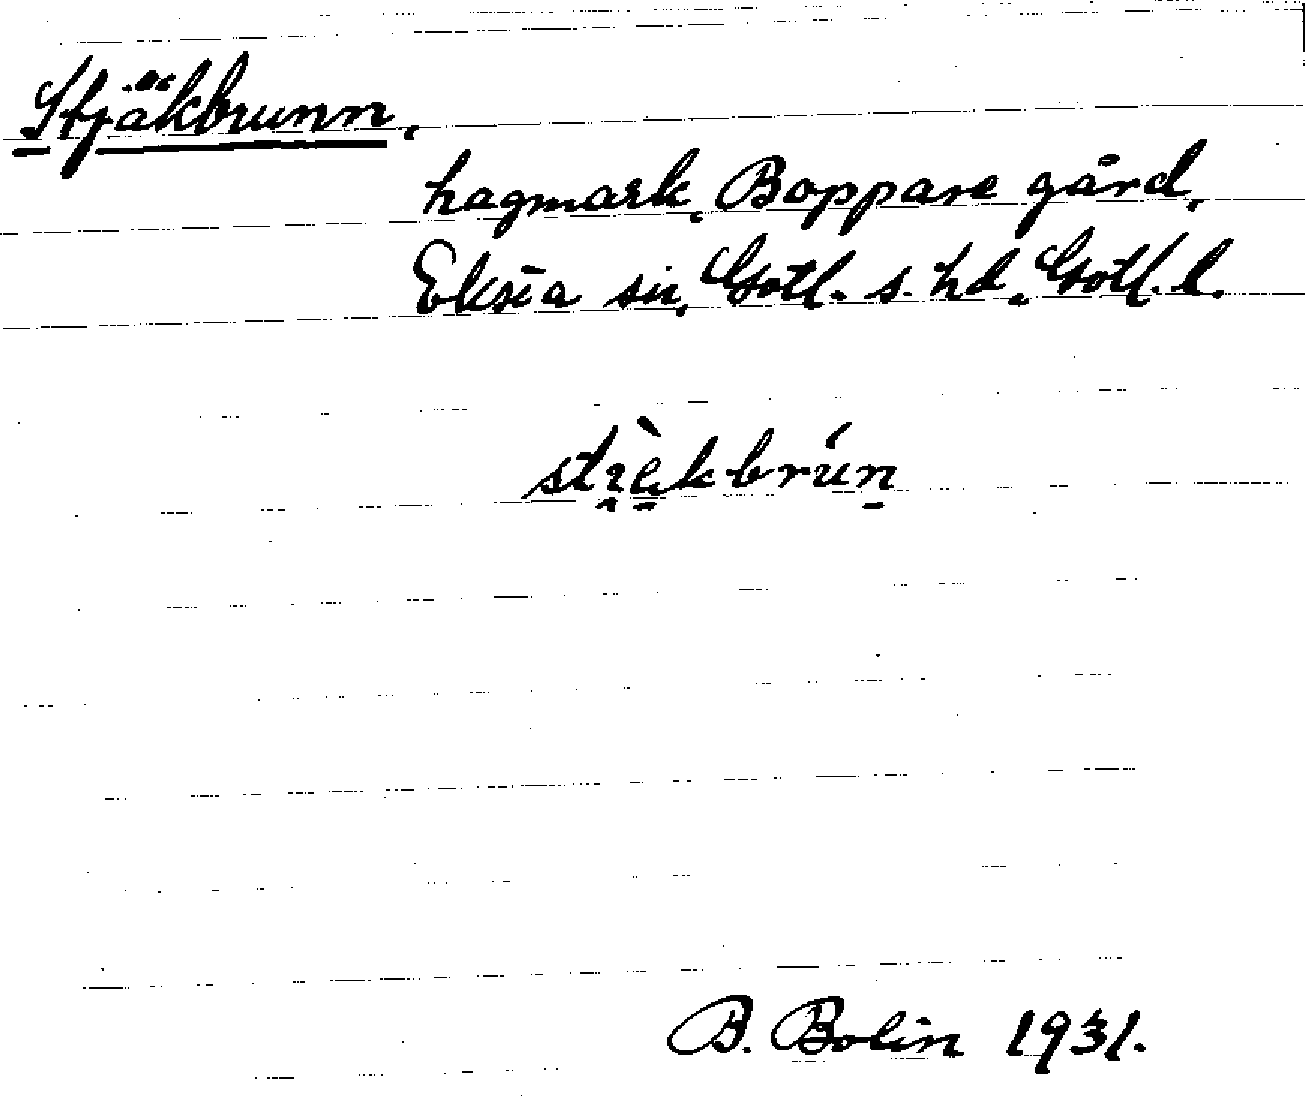 Stjäkbrunn,
hagmark, Boppare gård,
Eksta sn, Gotl. s. hd., Gotl. l.
B. Bolin 1931.